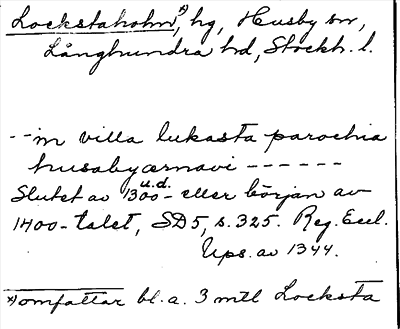 Lockstaholm,*) hg, Husby sn,
Långhundra hd, Stockh. l.
--in villa lukasta parochia
husabyærnavi ------
u.d.
Slutet av 1300- eller början av
1400-talet, SD5, s. 325. Reg. Eccl.
Ups. av 1344.
*) omfattar bl.a. 3 mtl Locksta